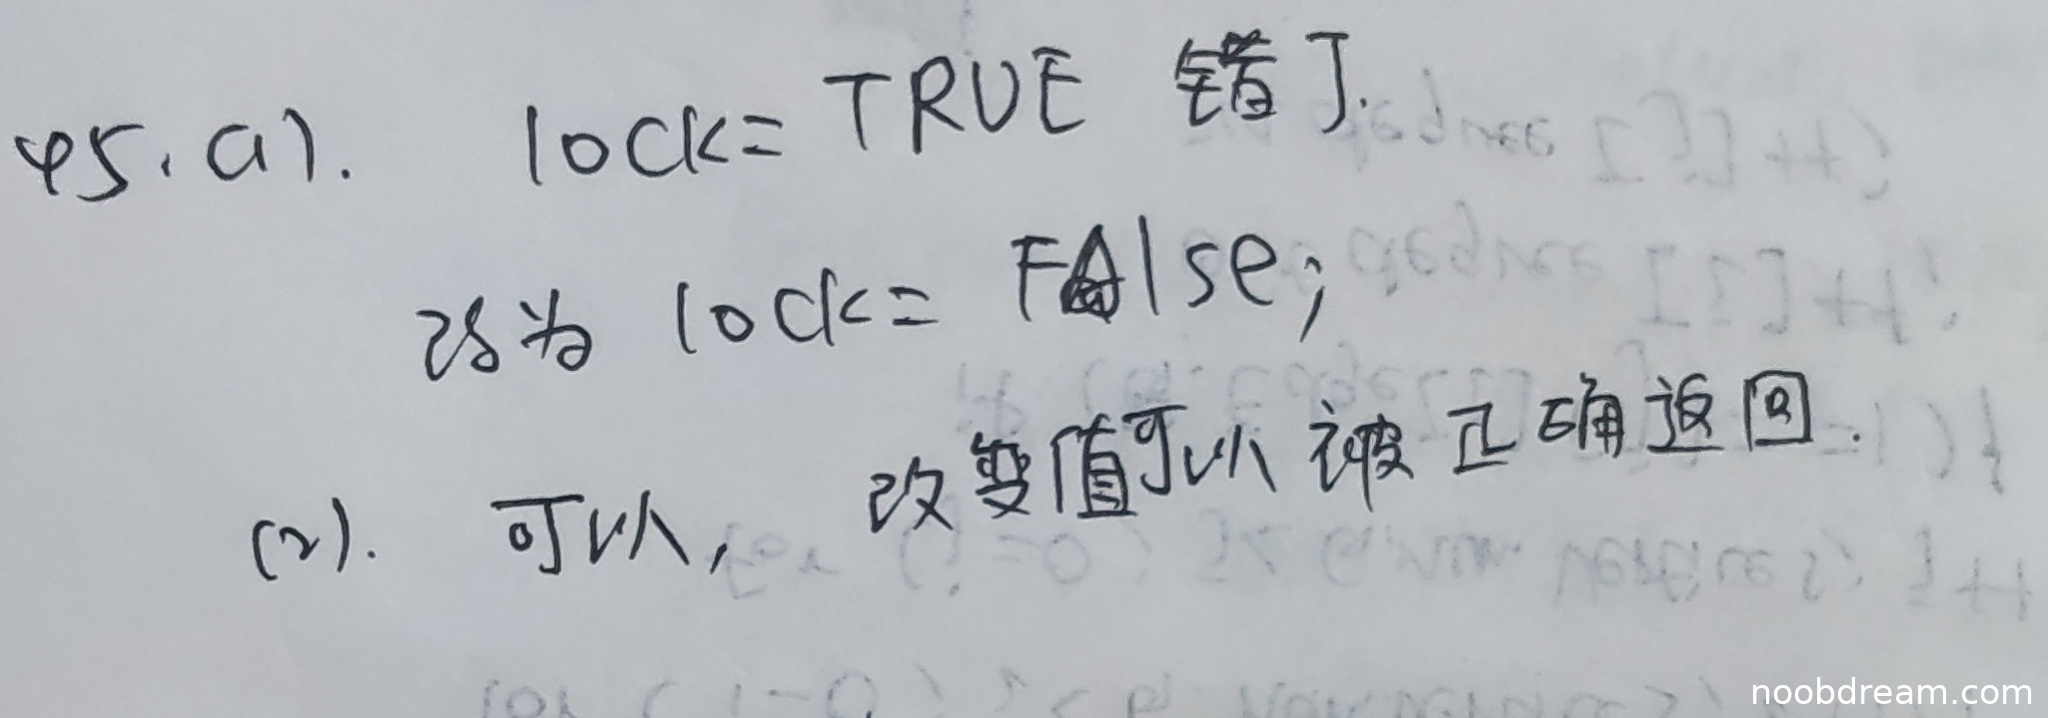 45. (1). lock= TRUE 错了.
改为 lock= FAlse;
(2). 可以, 改变值可以被正确返回.
noobdream.com